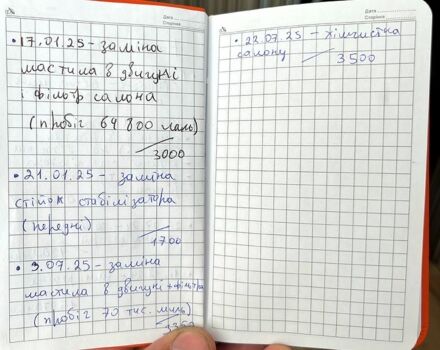 №
Дата
Сторінка
• 17.01.25 – заміна
мастила в двигуні
і фільтр салона
(пробіг 64 800 миль)
3000
• 21.01.25 – заміна
стійок стабілізатора
(передні)
1700
• 3.07.25 – заміна
мастила в двигуні + фільтра
(пробіг 70 тис. миль)
№
Дата
Сторінка
• 22.07.25 – хімчистка
салону
3500